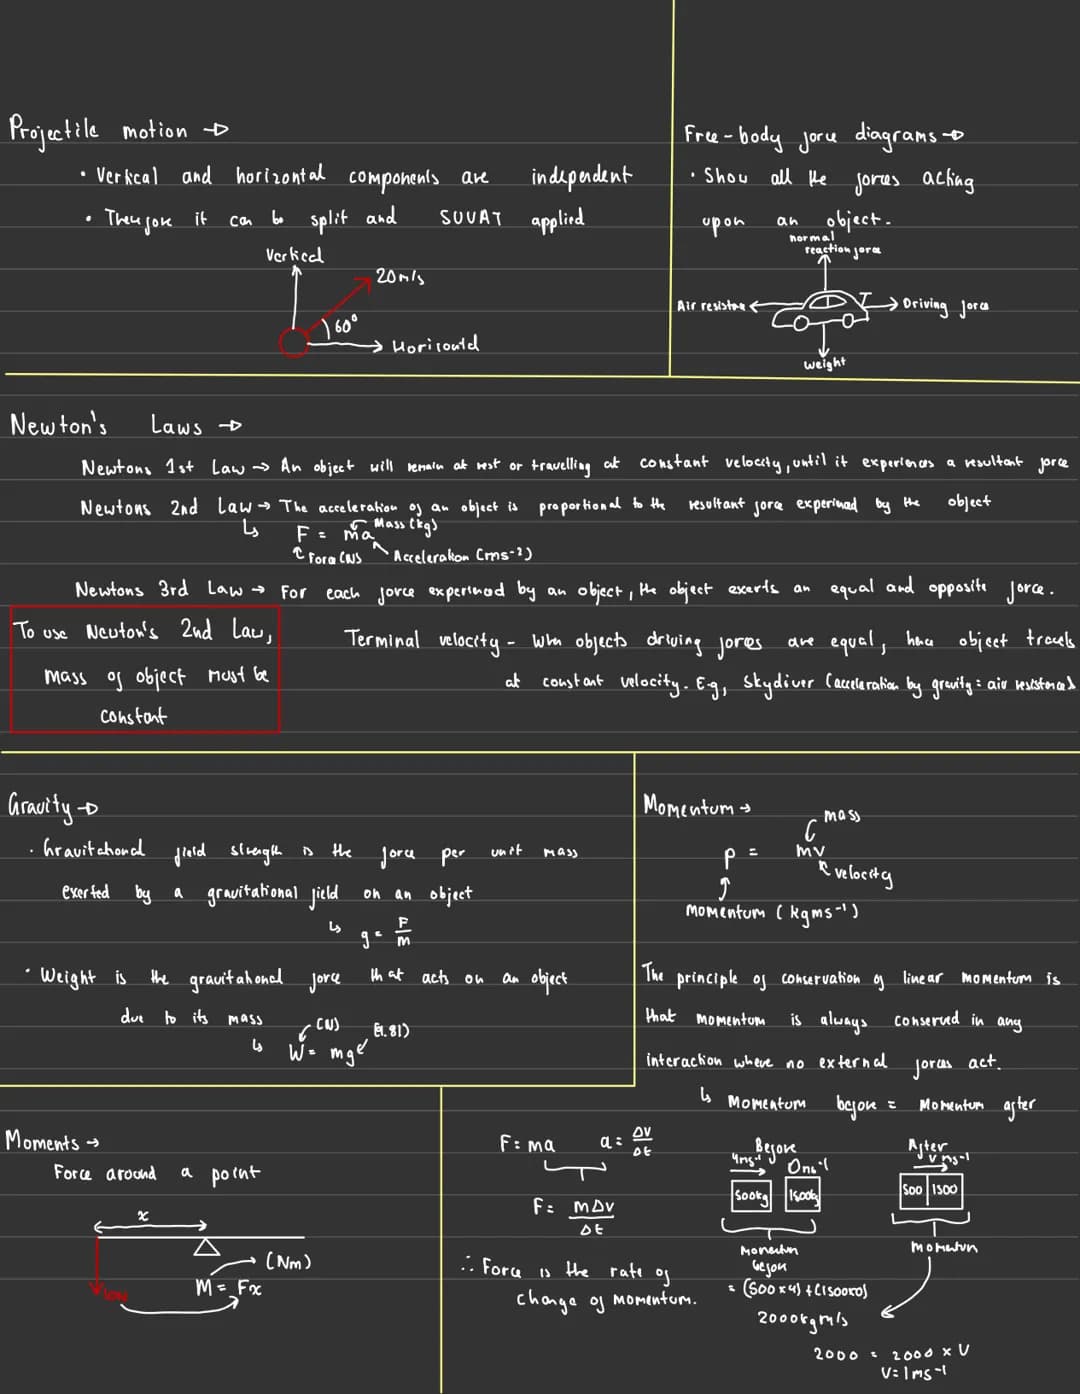 Projectile motion →
• Vertical and horizontal components are independent
• Therefore it can be split and SUVAT applied
Vertical
20m/s
60°
Horizontal
Free-body force diagrams →
• Show all the forces acting
upon an object.
normal
reaction force
Air resistance
Driving force
weight
Newton's Laws →
Newtons 1st Law → An object will remain at rest or travelling at constant velocity, until it experiences a resultant force
Newtons 2nd Law → The acceleration of an object is proportional to the resultant force experienced by the object
↳ F = ma
Mass (kg)
Force (N)
Acceleration (ms⁻²)
Newtons 3rd Law → For each force experienced by an object, the object exerts an equal and opposite force.
To use Newton's 2nd Law,
mass of object must be
constant
Terminal velocity - When objects driving forces are equal, hence object travels
at constant velocity. E.g, Skydiver (acceleration by gravity = air resistance)
Gravity →
• Gravitational field strength is the force per unit mass
exerted by a gravitational field on an object
↳ g = F/m
• Weight is the gravitational force that acts on an object
due to its mass
(N)
(9.81)
↳ W = mg
Momentum →
mass
p = mv
velocity
Momentum (kgms⁻¹)
The principle of conservation of linear momentum is
that momentum is always conserved in any
interaction where no external forces act.
↳ Momentum before = Momentum after
Before
4ms⁻¹
0ms⁻¹
500kg
1500kg
Momentum
before
= (500x4) + (1500x0)
2000kgm/s
After
v ms⁻¹
500 1500
Momentum
2000 = 2000 x V
V = 1ms⁻¹
Moments →
Force around a point
x
(Nm)
M = Fx
F = ma
a = Δv/Δt
F = mΔv/Δt
∴ Force is the rate of
change of momentum.